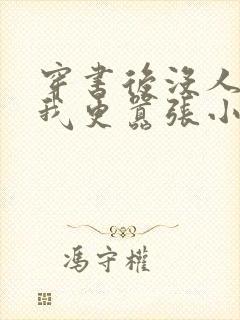 穿書後沒人
我更囂張小
馮守權